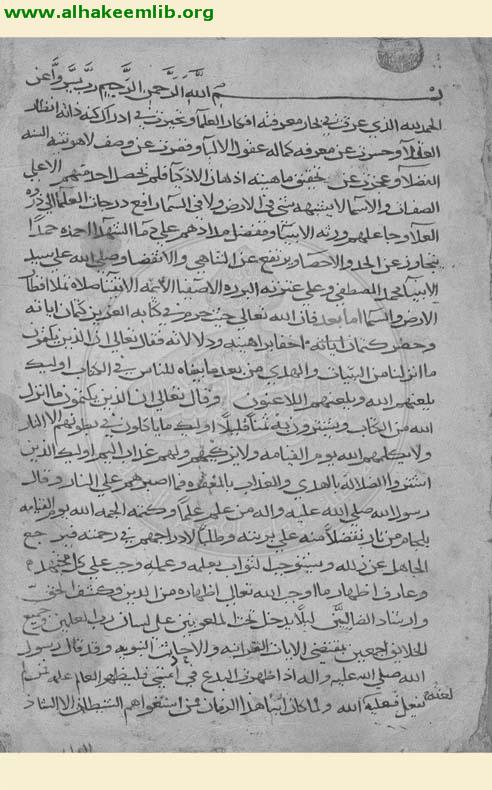 www.alhakeemlib.org
بسم الله الرحمن الرحيم رب يسر وأعن
الحمد لله الذي غرق في بحار معرفته افكار العلما وتحيرت في ادراك كنه ذاته انظار
العقلا وحسرت عن معرفة كماله عقول الالبا وقصرت عن وصف لاهوتيته السنة
الفضلا وعجزت عن تحقق ماهيته اذهان الاذكيا فلم تحصل احد منهم الا على
الصفات والاسما لا يشبهه شي في الارض ولا في السما رافع درجات العلما الى ذروة
العلا وجاعلهم ورثة الانبيا ومفضل مدادهم على دما الشهدا احمده حمدا
يتجاوز عن الحد والاحصا ويرتفع عن التناهي والانقضا وصلى الله على سيد
الانبيا محمد المصطفى وعلى عترته البررة الاصفيا الائمة الاتقيا صلاة تملا اقطار
الارض والسما اما بعد فان الله تعالى حيث حرم في كتابه العزيز كتمان اياته
وحضر كتمان اياته اخفا براهينه ودلالاته فقال تعالى ان الذين يكتمون
ما انزلنا من البينات والهدى من بعد ما بيناه للناس في الكتاب اوليك
يلعنهم الله ويلعنهم اللاعنون وقال تعالى ان الذين يكتمون ما انزل
الله من الكتاب ويشترون به ثمنا قليلا اوليك ما ياكلون في بطونهم الا النار
ولا يكلمهم الله يوم القيامه ولا يزكيهم ولهم عذاب اليم اوليك الذين
اشتروا الضلالة بالهدى والعذاب بالمغفرة فما اصبرهم على النار وقال
رسول الله صلى الله عليه واله من علم علما وكتمه الجمه الله يوم القيامه
بلجام من نار تفضلا منه على بريته وطلبا لادراجهم في رحمته فيرجع
الجاهل عن زلله ويستوجب الثواب بعلمه وعمله وجب على كل مجتهد
وعارف اظهار ما اوجب الله تعالى اظهاره من الدين وكشف الحق
وارشاد الضالين ليلا يدخل تحت الملعونين على لسان رب العلمين وجميع
الخلايق اجمعين بمقتضى الايات القرانيه والاحاديث النبويه وقد قال رسول
الله صلى الله عليه واله اذا ظهرت البدع في امتي فليظهر العالم علمه فمن لم
يفعل فعليه لعنة الله ولما كان ابنا هذا الزمان ممن استغواهم الشيطان الا الشاذ